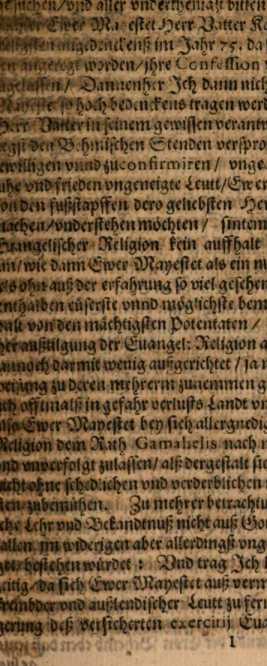 suchen / vnd aller vnderthenigst bitten
Ewer Mayestet Herr Vatter K
seligsten angedenckenß im Jahr 75. da
angeregt worden / jhre Confession
gelassen / Dannenher Jch dann nich
Mayestet so hoch bedenckens tragen werd
Herr Vatter in seinem gewissen verantw
den Behmischen Stenden verspro
bewilligen vnnd zu confirmiren / vnge
ruhe vnd frieden vngeneigte Leutt / Ewer
von den fußstapffen dero geliebsten Her
machen / vnderstehen möchten / sintem
Euangelischer Religion kein auffhalt
an / wie dann Ewer Mayestet als ein
auß der erfahrung so viel gesehen
enthalben eüserste vnnd möglichste bem
von den mächtigsten Potentaten /
außtilgung der Euangel: Religion a
dannoch darmit wenig außgerichtet / ja
zu deren mehrerm zunemmen g
sich offtmalß in gefahr verlusts Landt vn
also Ewer Mayestet bey sich allergnedig
Religion dem Rath Gamahelis nach
vnd vnuerfolgt zulassen / alß dergestalt sie
nicht ohne schedlichen vnd verderblichen
zubemühen. Zu mehrer betrachtu
Lehr vnd Bekandtnuß nicht auß Go
fallen, im widerigen aber allerdingst vng
bestehen würdet; Vnd trag Jch
da sich Ewer Mayestet auß verm
frembder vnd außlendischer Leutt zu fern
deß versicherten exercitij Eua
1